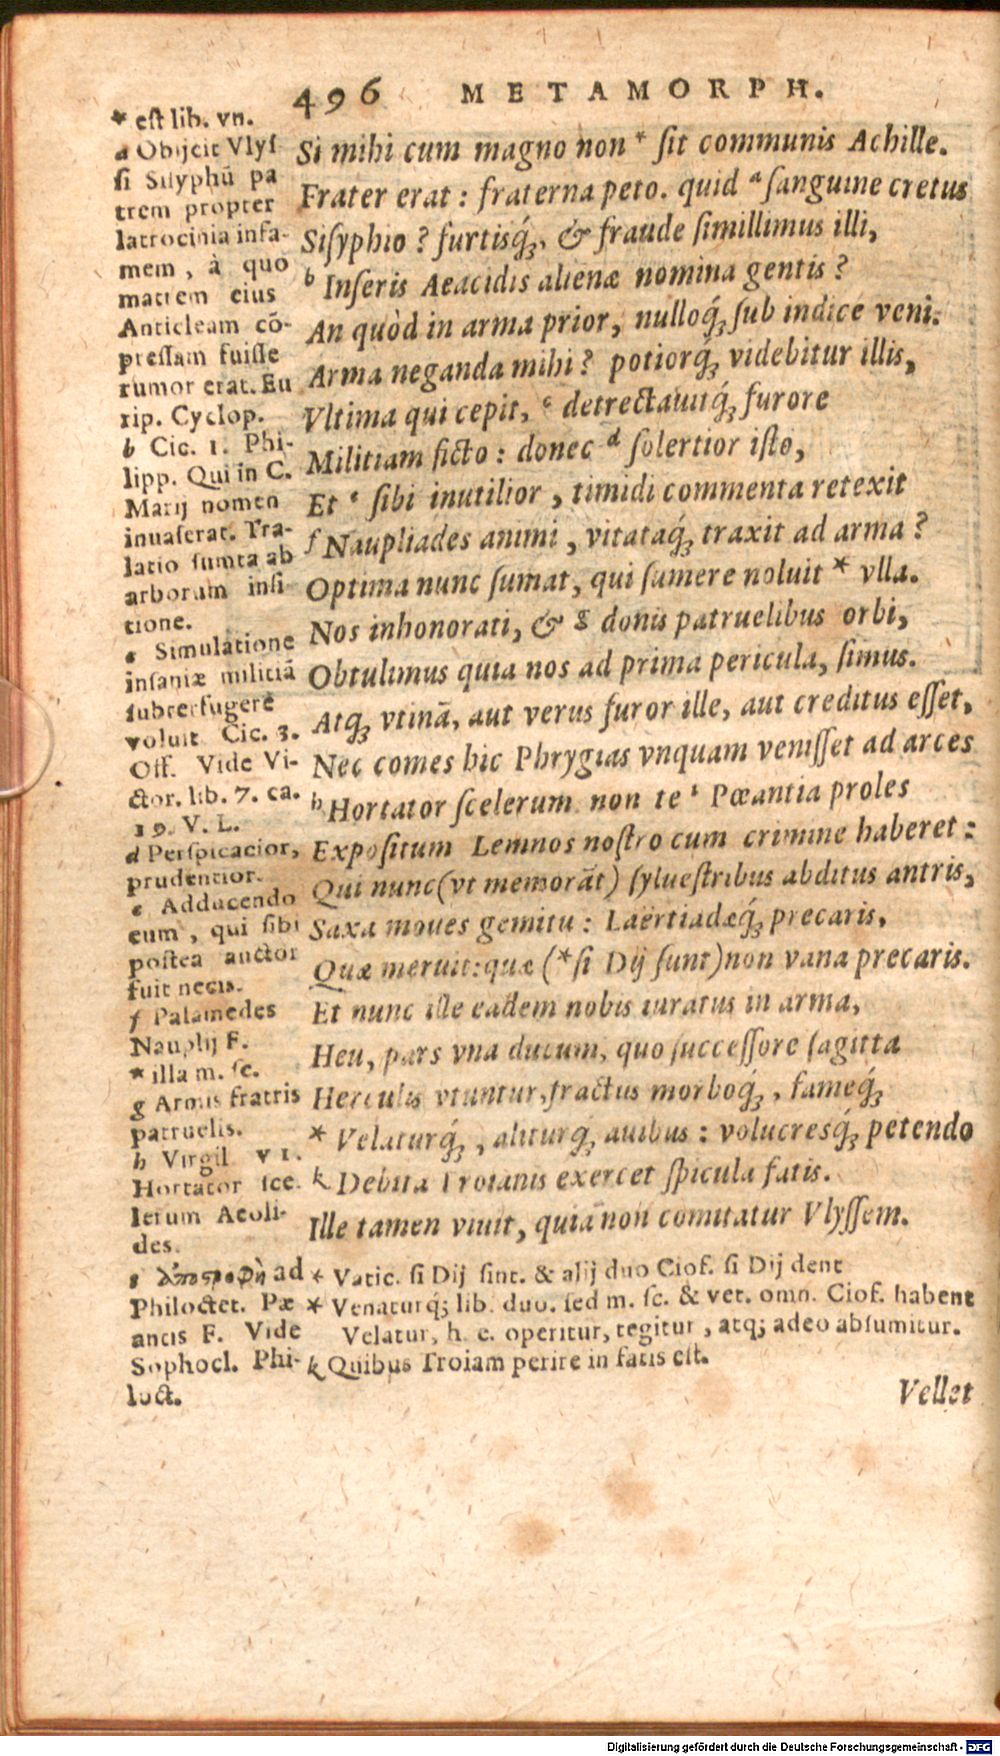 496 METAMORPH.
Si mihi cum magno non * ſit communis Achille.
Frater erat : fraterna peto. quid ᵃ ſanguine cretus
Siſyphio ? furtisq́;, & fraude ſimillimus illi,
ᵇ Inſeris Aeacidis alienæ nomina gentis ?
An quòd in arma prior, nulloq́; ſub indice veni.
Arma neganda mihi ? potiorq́; videbitur illis,
Vltima qui cepit, ᶜ detrectauitq́; furore
Militiam ficto : donec ᵈ ſolertior iſto,
Et ᵉ ſibi inutilior, timidi commenta retexit
f Naupliades animi, vitataq́; traxit ad arma ?
Optima nunc ſumat, qui ſumere noluit * vlla.
Nos inhonorati, & g donis patruelibus orbi,
Obtulimus quia nos ad prima pericula, ſimus.
Atq́; vtinā, aut verus furor ille, aut creditus eſſet,
Nec comes hic Phrygias vnquam veniſſet ad arces
h Hortator ſcelerum non te ⁱ Pœantia proles
Expoſitum Lemnos noſtro cum crimine haberet :
Qui nunc (vt memorāt) ſylueſtribus abditus antris,
Saxa moues gemitu : Laërtiadæq́; precaris,
Quæ meruit: quæ (* ſi Dij ſunt) non vana precaris.
Et nunc ille eadem nobis iuratus in arma,
Heu, pars vna ducum, quo ſucceſſore ſagitta
Herculis vtuntur, fractus morboq́;, fameq́;
* Velaturq́;, aliturq́; auibus : volucresq́; petendo
k Debita Troianis exercet ſpicula fatis.
Ille tamen viuit, quia non comitatur Vlyſſem.
* eſt lib. vn.
a Obijcit Vlyſ
ſi Siſyphū pa
trem propter
latrocinia infa-
mem, à quo
matrem eius
Anticleam cō-
preſſam fuiſſe
rumor erat. Eu
rip. Cyclop.
b Cic. 1. Phi-
lipp. Qui in C.
Marij nomen
inuaſerat. Tra-
latio ſumta ab
arborum inſi-
tione.
c Simulatione
inſaniæ militiā
ſubterfugere
voluit Cic. 3.
Off. Vide Vi-
ctor. lib. 7. ca.
19. V. L.
d Perſpicacior,
prudentior.
e Adducendo
eum, qui ſibi
poſtea auctor
fuit necis.
f Palamedes
Nauplij F.
* illa m. ſc.
g Armis fratris
patruelis.
h Virgil. VI.
Hortator ſce-
lerum Aeoli-
des.
i ἀποστροφὴ ad
Philoctet. Pæ
antis F. Vide
Sophocl. Phi-
loct.
* Vatic. ſi Dij ſint. & alij duo Cioſ. ſi Dij dent
* Venaturq́; lib. duo. ſed m. ſc. & vet. omn. Cioſ. habent
Velatur, h. e. operitur, tegitur, atq; adeo abſumitur.
k Quibus Troiam perire in fatis eſt.
Vellet
Digitalisierung gefördert durch die Deutsche Forschungsgemeinschaft - DFG